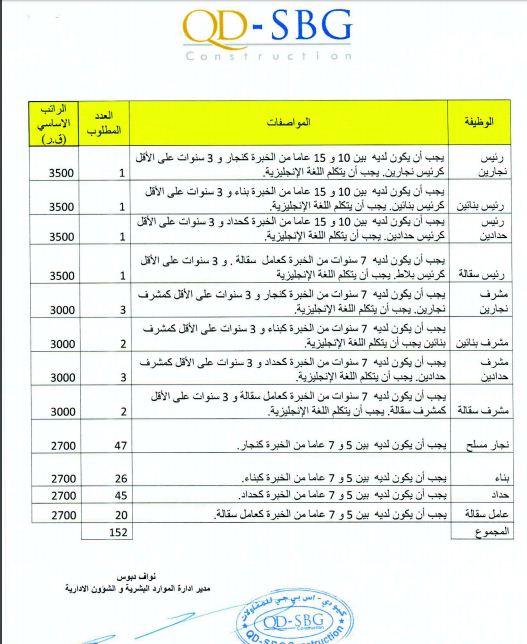 QD-SBG
Construction
الوظيفة المواصفات العدد المطلوب الراتب الاساسي (ق.ر)
رئيس نجارين يجب أن يكون لديه بين 10 و 15 عاما من الخبرة كنجار و 3 سنوات على الأقل كرئيس نجارين. يجب أن يتكلم اللغة الإنجليزية. 1 3500
رئيس بنائين يجب أن يكون لديه بين 10 و 15 عاما من الخبرة بناء و 3 سنوات على الأقل كرئيس بنائين. يجب أن يتكلم اللغة الإنجليزية. 1 3500
رئيس حدادين يجب أن يكون لديه بين 10 و 15 عاما من الخبرة كحداد و 3 سنوات على الأقل كرئيس حدادين. يجب أن يتكلم اللغة الإنجليزية. 1 3500
رئيس سقالة يجب أن يكون لديه 7 سنوات من الخبرة كعامل سقالة . و 3 سنوات على الأقل كرئيس بلاط. يجب أن يتكلم اللغة الإنجليزية 1 3500
مشرف نجارين يجب أن يكون لديه 7 سنوات من الخبرة كنجار و 3 سنوات على الأقل كمشرف نجارين. يجب أن يتكلم اللغة الإنجليزية. 3 3000
مشرف بنائين يجب أن يكون لديه 7 سنوات من الخبرة كبناء و 3 سنوات على الأقل كمشرف بنائين يجب أن يتكلم اللغة الإنجليزية. 2 3000
مشرف حدادين يجب أن يكون لديه 7 سنوات من الخبرة كحداد و 3 سنوات على الأقل كمشرف حدادين. يجب أن يتكلم اللغة الإنجليزية. 3 3000
مشرف سقالة يجب أن يكون لديه 7 سنوات من الخبرة كعامل سقالة و 3 سنوات على الأقل كمشرف سقالة. يجب أن يتكلم اللغة الإنجليزية. 2 3000
نجار مسلح يجب أن يكون لديه بين 5 و 7 عاما من الخبرة كنجار. 47 2700
بناء يجب أن يكون لديه بين 5 و 7 عاما من الخبرة كبناء. 26 2700
حداد يجب أن يكون لديه بين 5 و 7 عاما من الخبرة كحداد. 45 2700
عامل سقالة يجب أن يكون لديه بين 5 و 7 عاما من الخبرة كعامل سقالة. 20 2700
المجموع 152
نواف دبوس
مدير ادارة الموارد البشرية و الشؤون الادارية
كيو دي - اس بي جي للمقاولات
QD-SBG
Construction
QD-SBG Construction